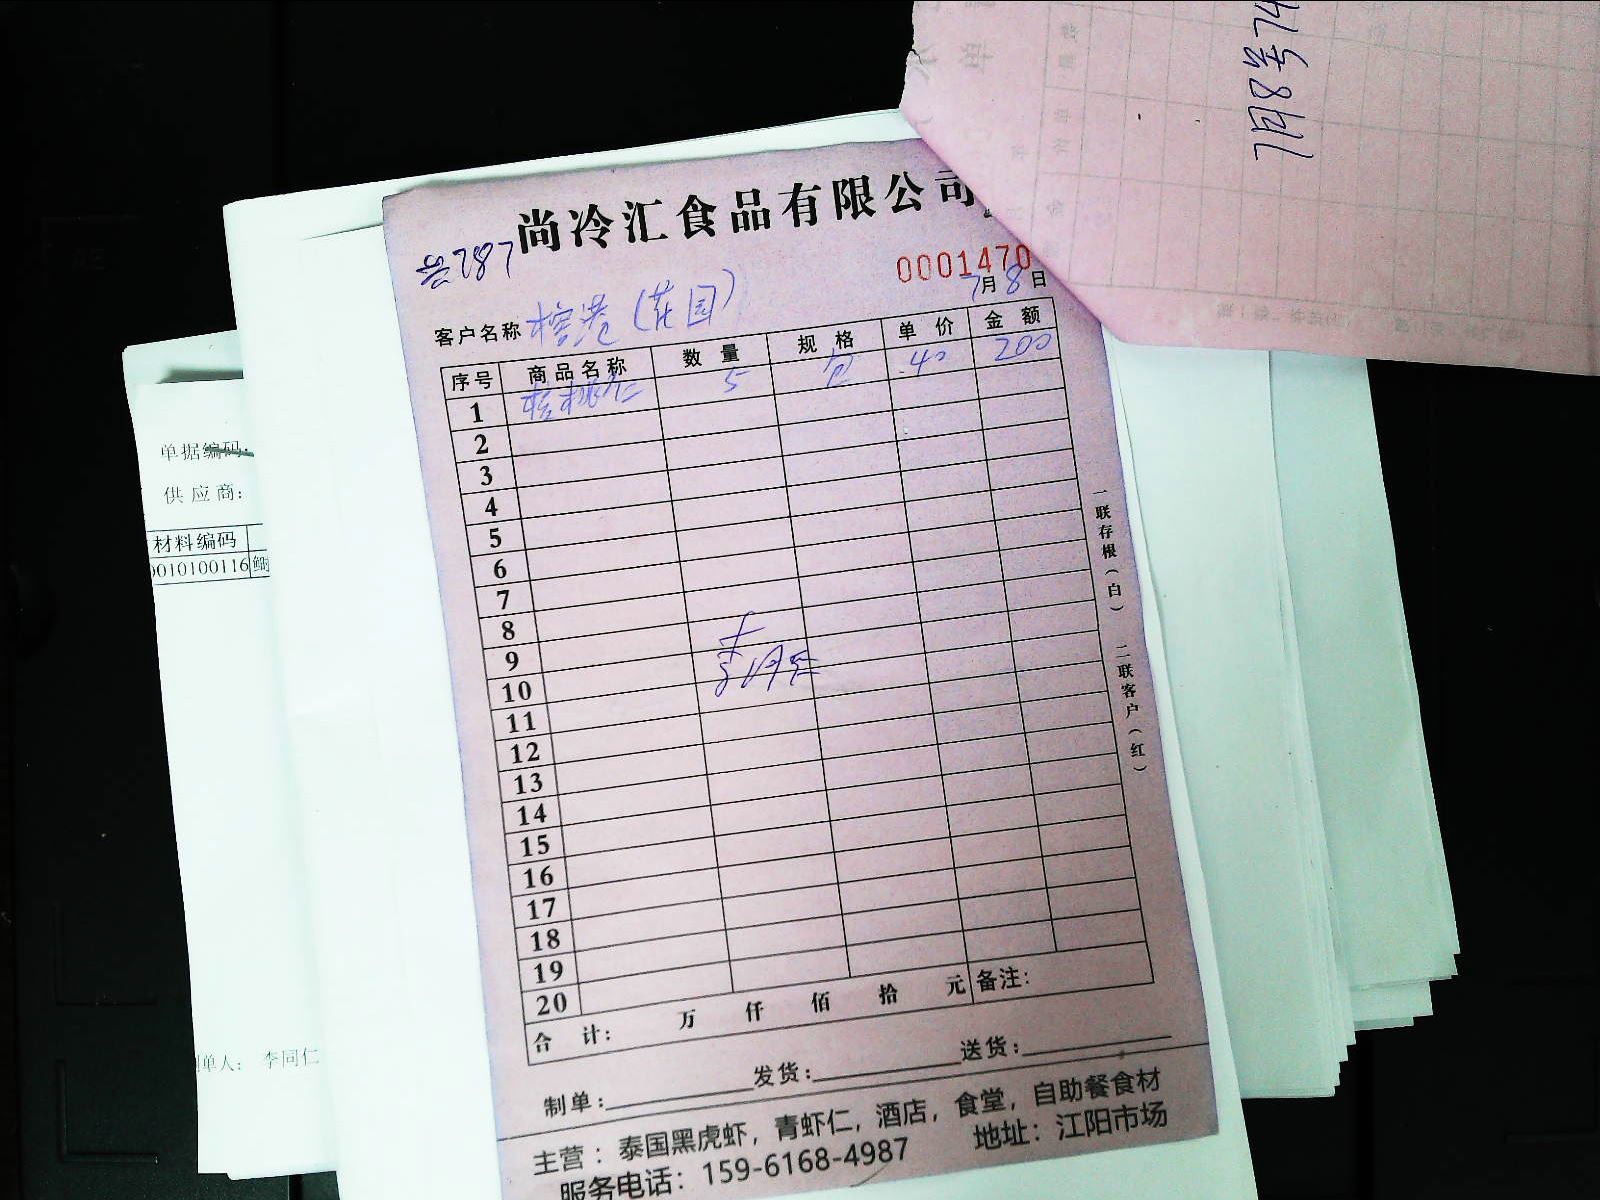 尚冷汇食品有限公司
去787
0001470
7月8日
客户名称 榕港(花园)
序号 商品名称 数量 规格 单价 金额
1 核桃仁 5 包 40 200
2
3
4
5
6
7
8
9
10
11
12
13
14
15
16
17
18
19
20
合计: 万 仟 佰 拾 元 备注:
制单: 发货: 送货:
主营：泰国黑虎虾，青虾仁，酒店，食堂，自助餐食材
服务电话：159-6168-4987 地址：江阳市场
一联存根(白) 二联客户(红)
李同仁
单据编码:
供应商:
材料编码
0010100116
制单人: 李同仁